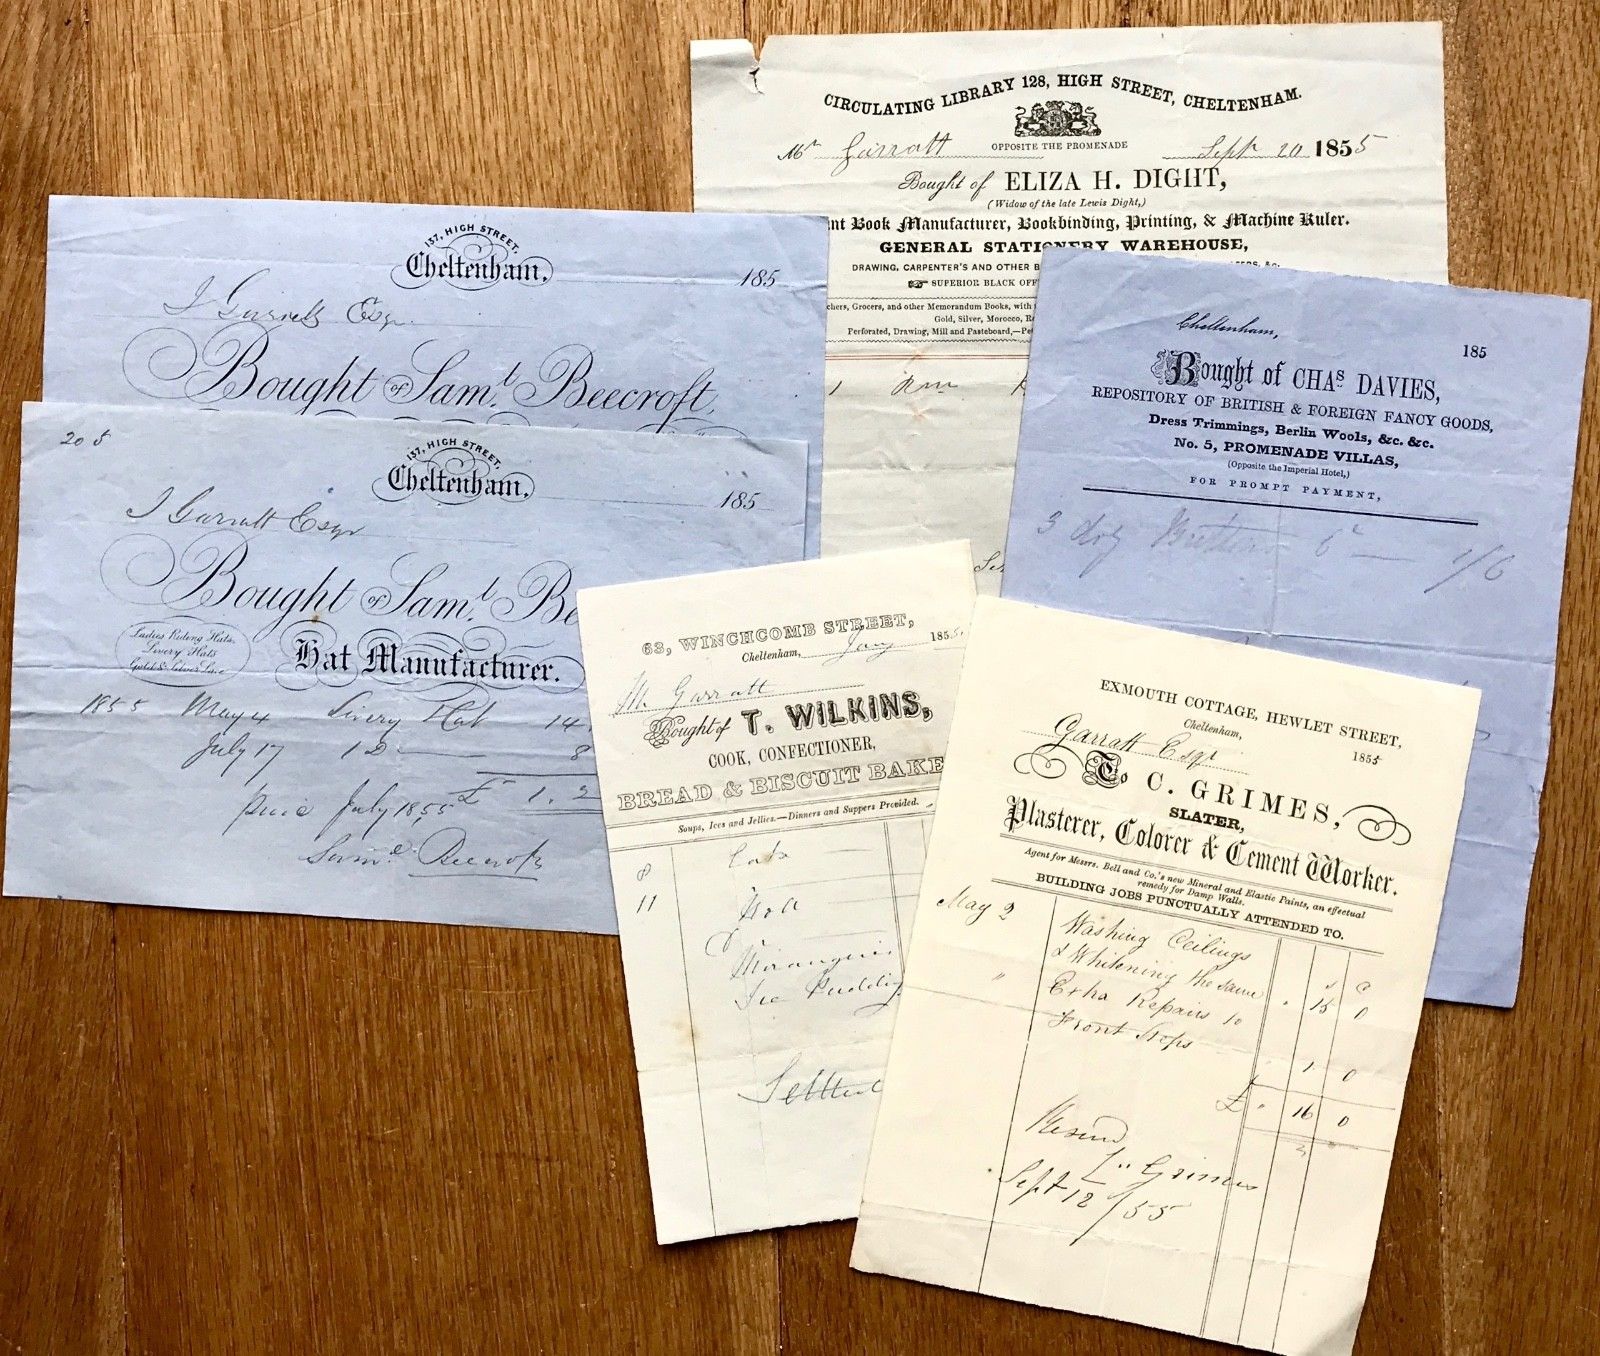 CIRCULATING LIBRARY 128, HIGH STREET, CHELTENHAM.
OPPOSITE THE PROMENADE
Mr Garratt Sept 20 1855
Bought of ELIZA H. DIGHT,
(Widow of the late Lewis Dight,)
nt Book Manufacturer, Bookbinding, Printing, & Machine Ruler.
GENERAL STATIONERY WAREHOUSE,
DRAWING, CARPENTER'S AND OTHER
SUPERIOR BLACK OFF
chers, Grocers, and other Memorandum Books, with
Gold, Silver, Morocco,
Perforated, Drawing, Mill and Pasteboard,—
1
137, HIGH STREET,
Cheltenham, 185
J Garratt Esqr
Bought of Saml. Beecroft,
20 5
137, HIGH STREET,
Cheltenham, 185
J Garratt Esqr
Bought of Saml. Be
Ladies Riding Hats.
Livery Hats
Gold & Silver Lace
Hat Manufacturer.
1855 May 4 Livery Hat 14
July 17 1 Do 8
July 1855 £ 1. 2
Saml Beecroft
Cheltenham, 185
Bought of CHAs DAVIES,
REPOSITORY OF BRITISH & FOREIGN FANCY GOODS,
Dress Trimmings, Berlin Wools, &c. &c.
No. 5, PROMENADE VILLAS,
(Opposite the Imperial Hotel,)
FOR PROMPT PAYMENT,
3 doz 6 1/6
63, WINCHCOMB STREET,
Cheltenham, Jany 1855
M Garratt
Bought of T. WILKINS,
COOK, CONFECTIONER,
BREAD & BISCUIT BAKE
Soups, Ices and Jellies.—Dinners and Suppers Provided.
8
11
Ice Pudding
Settled
EXMOUTH COTTAGE, HEWLET STREET,
Cheltenham, 1855
Garratt Esqr
To C. GRIMES,
SLATER,
Plasterer, Colorer & Cement Worker.
Agent for Messrs. Bell and Co.'s new Mineral and Elastic Paints, an effectual
remedy for Damp Walls.
BUILDING JOBS PUNCTUALLY ATTENDED TO.
May 2 Washing Ceilings
& Whitening the same " 15 0
" Extra Repairs to
Front Steps 1 0
£ " 16 0
Grimes
Sept 12/55